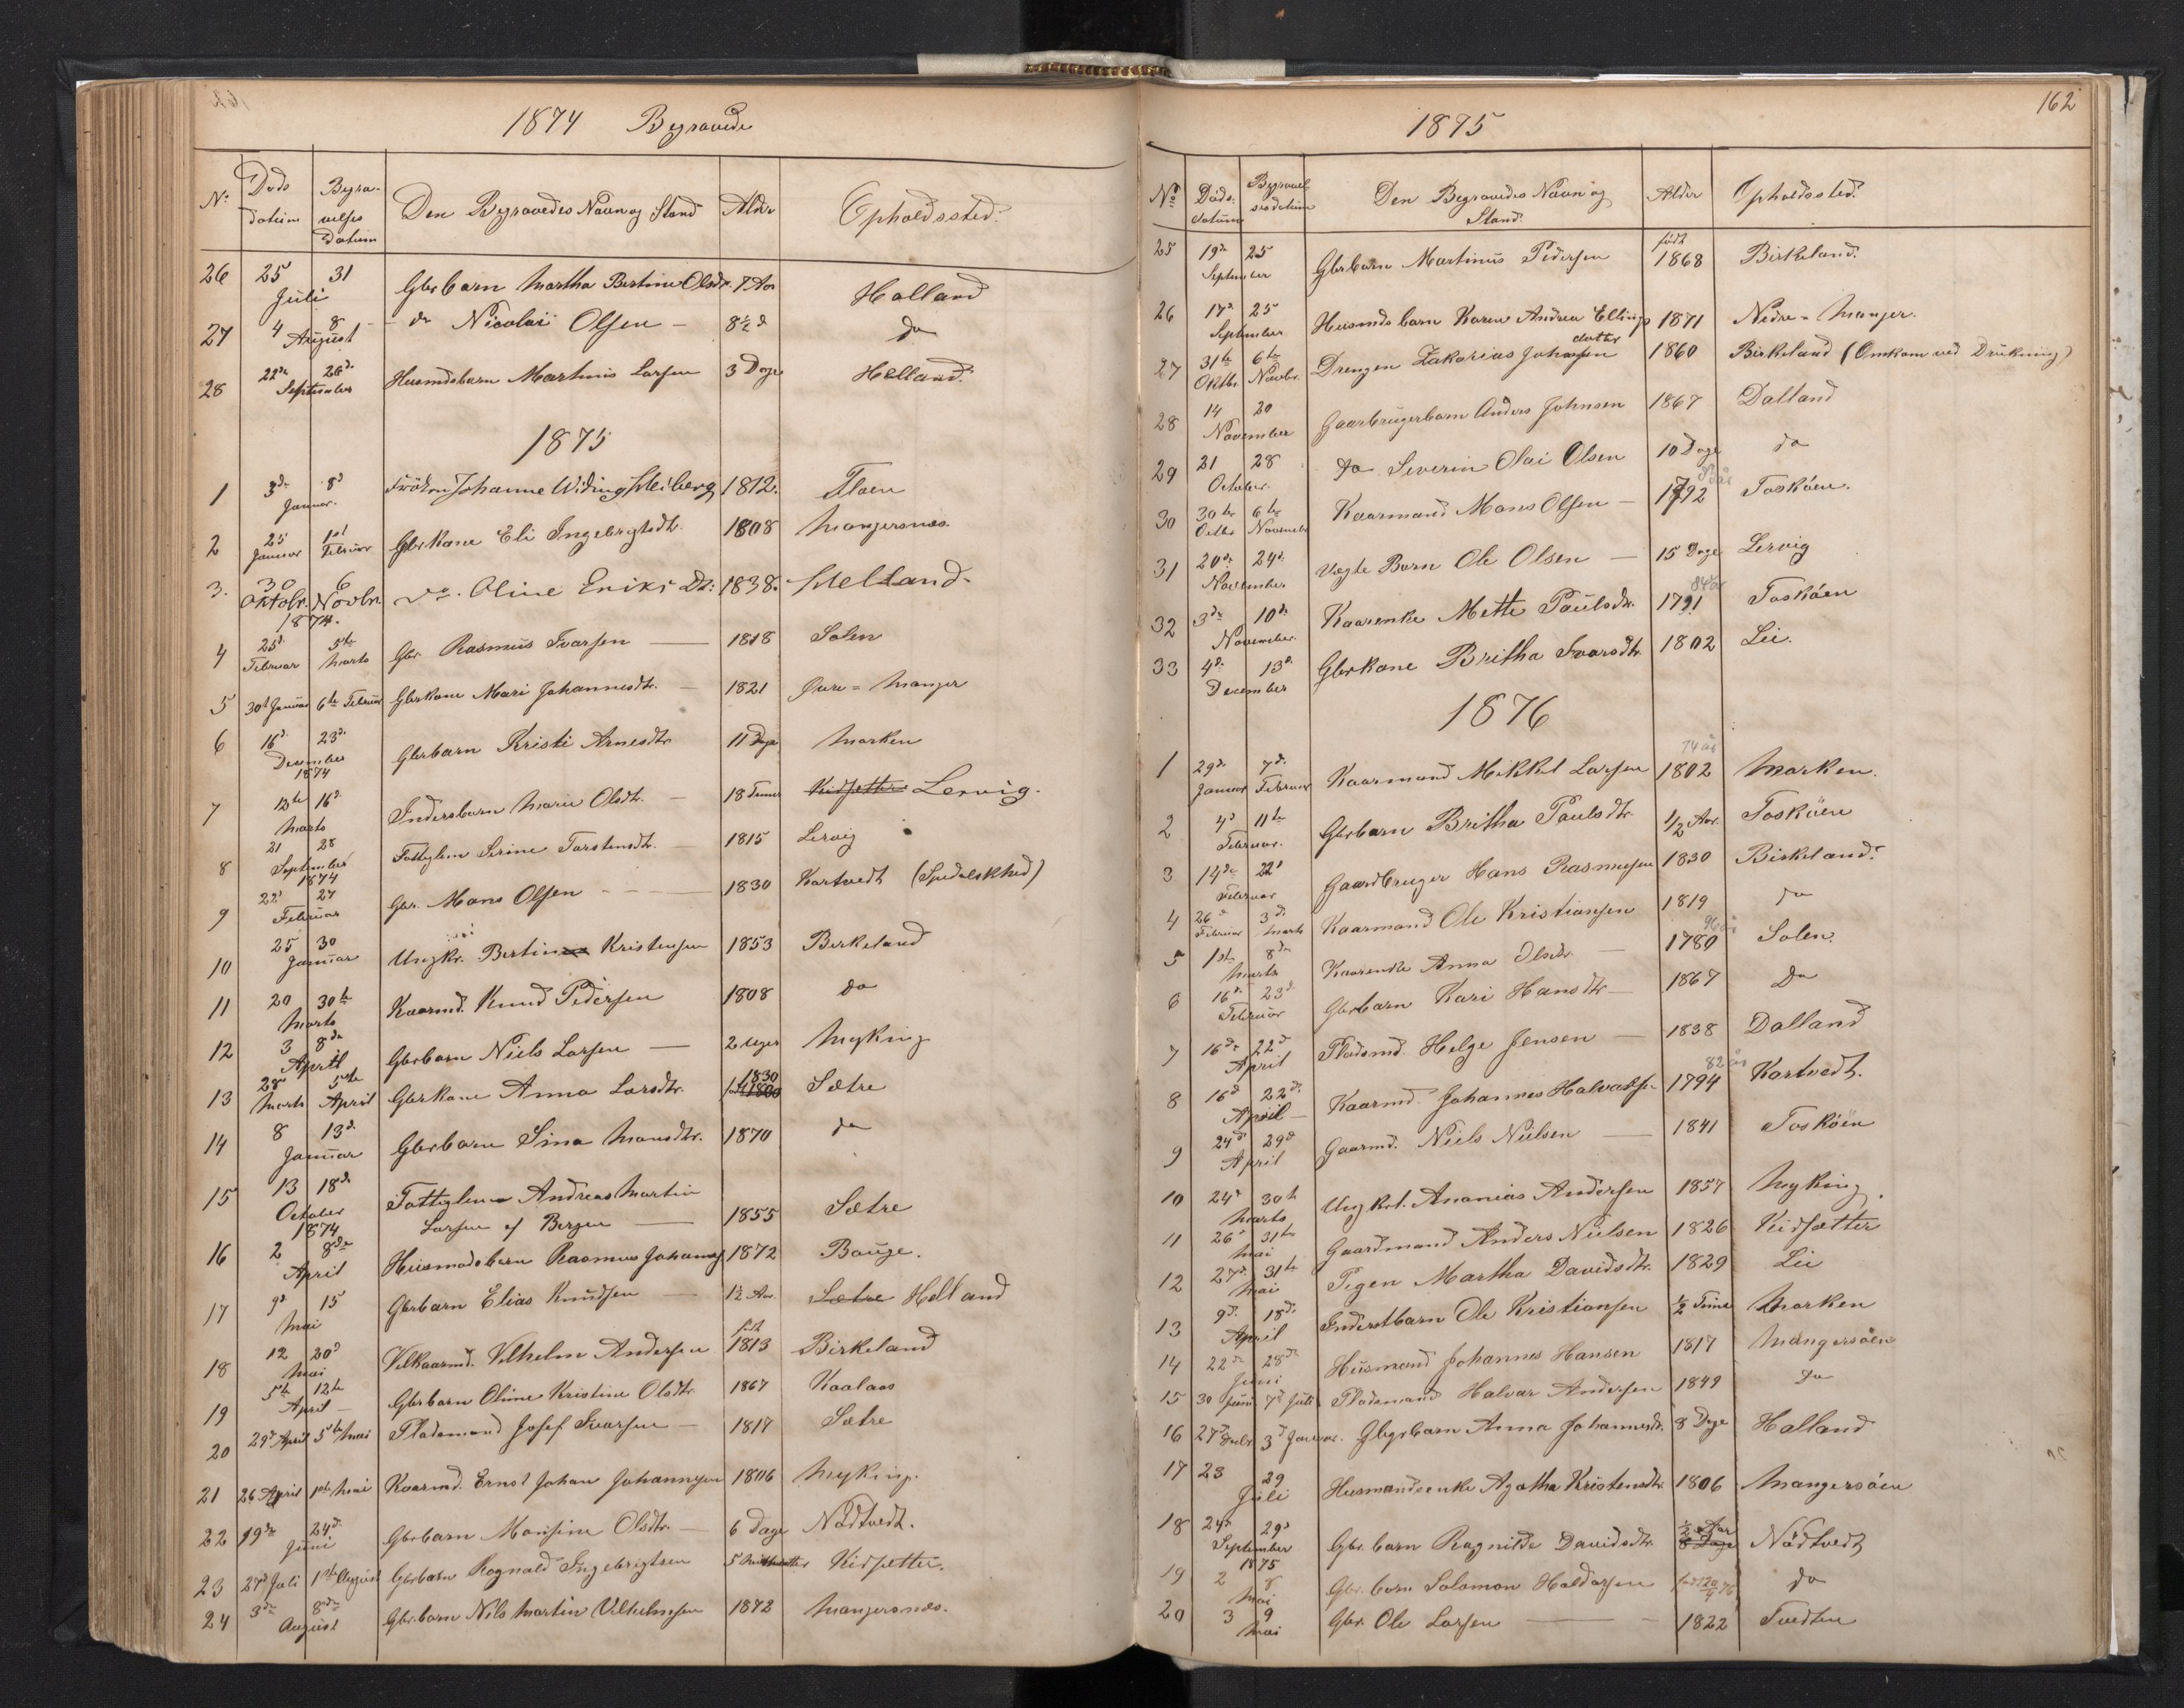 1874 Begravede
No Döds datum Begravelses Datum Den Begravedes Navn og Stand Alder Opholdssted.
26 25 31 Juli Gbrbarn Martha Bertine Olsdr. 7 Aar Halland
27 4 8 August do Nicolai Olsen 8½ d do
28 22de 26d. September Husmdsbarn Martinus Larsen 3 Dage Helland.
1875
1 3de 8d Januar. Fröken Johanne Widing Heiberg 1812. Floen
2 25 Januar 1st Februar Gbrkone Eli Ingebrigtsdtr. 1808 Mangersnæs.
3. 30 Oktobr. 6 Novbr. 1874. do. Oline Eriks Dt: 1838. Helland.
4 25d. Februar 5te Marts Gbr Rasmus Ivarsen 1818 Solen
5 30t Januar 6te Februar Gbrkone Mari Johannesdtr. 1821 Øvre = Manger
6 16d. 23d. December 1874 Gbrbarn Kristi Arnesdtr 11 Dage Marken
7 13te 16d. Marts Indersbarn Marie Olsdtr. 18 Timer Kidsetter Lervig.
8 21 28 September 1874 Fattiglem Serine Torstensdtr. 1815 Lervig
9 22d 27 Februar Gbr. Mons Olsen 1830 Kartvedt (Spedalskhed)
10 25 30 Januar Ungkr. Bertin Kristensen 1853 Birkeland
11 20 30te Marts Kaarmd. Knud Pedersen 1808 do
12 3 8de April Gbrbarn Niels Larsen 2 Uger Myking
13 28 Marts 5te April Gbrkone Anna Larsdtr. 1830 1800 Sætre
14 8 13d. Januar Gbrbarn Sina Monsdtr. 1870 do
15 13 18d. October 1874 Fattiglem Andreas Martin
Larsen af Bergen 1855 Sætre
16 2 8de April Husmadsbarn Rasmus Johannes 1872 Bauge.
17 9d 15 Mai Gbrbarn Elias Knudsen 1½ Aar Sætre Helland
18 12 20d Mai Velkaarmd. Vilhelm Andersen födt 1813 Birkeland
19 5te 12te April Gbrbarn Oline Kristine Olsdtr 1867 Kaalaas
20 29d April 5te Mai Pladsmand Josef Ivarsen 1817 Sætre
21 26 April 1ste Mai Kaarmd. Ernst Johan Johannesen 1806 Myking.
22 19de 24d. Juni Gbrbarn Monsine Olsdtr. 6 Dage Nödtvedt.
23 27d Juli 1ste August Gbrbarn Ragnald Ingebrigtsen 5 Kidsetter.
24 3de 8de August Gbrbarn Nils Martin Vilhelmsen 1872 Mangersnæs.
162
1875
No Döds. datum Begravelsesdatum Den Begravedes Navn og Stand. Alder Opholdssted.
25 19de 25 September Gbrbarn Martinus Pedersen födt 1868 Birkeland.
26 17d 25 September Husmds barn Karen Andrea Ellings datter 1871 Nedre = Manger.
27 31te Oktbr. 6te Novbr. Drengen Zakarias Johnsen 1860 Birkeland (Omkom ved Drukning)
28 14 20 November Gaarbrugerbarn Anders Johnsen 1867 Dalland
29 21 28 October. do Severin Olai Olsen 10 Dage do
30 30te Octbr 6te Novembr Kaarmand Mons Olsen 1792 Toskøen.
31 20de 24d. November Uægte Barn Ole Olsen 15 Dage Lervig
32 3de 10d. November. Kaarenke Mette Paulsdtr. 1791 84 år Toskøen
33 4d. 13d. December Gbrkone Britha Ivarsdtr. 1802 Lie.
1876
1 29d. Januar 7d. Februar Kaarmand Mikkel Larsen 1802 74 år Marken.
2 4d 11te Februar. Gbrbarn Britha Paulsdtr. ½ Aar. Toskøen
3 14de 22d Februar Gaardbruger Hans Rasmussen 1830 Birkeland.
4 26d Februar 3d. Marts Kaarmand Ole Kristiansen 1819 do
5 1ste 8de Marts Kaarenke Anna Olsdtr. 1780 96 år Solen.
6 16d. 23d. Februar Gbrbarn Kari Hansdtr 1867 do
7 16de 22d April Pladsmd. Helge Jensen 1838 Dalland
8 16d 22d. April Kaarmd. Johannes Halvorsen 1794 82 år Kartvedt.
9 24d. 29d April Gaarmd. Niels Nielsen 1841 Toskøen
10 24d 30te Marts Ungkrl. Ananias Andersen 1857 Myking.
11 26d 31te Mai Gaardmand Anders Nielsen 1826 Kidsætter
12 27d. 31te Mai Pigen Martha Davidsdtr. 1829 Lie
13 9d. 18d. April Inderstbarn Ole Kristiansen ½ Time Marken
14 22de 28de Juni Husmand Johannes Hansen 1817 Mangersöen
15 30 Juni 7d Juli Pladsmand Halvor Andersen 1849 do
16 27de 3d Januar. Gbgrbarn Anna Johannesdtr. 8 Dage Halland
17 23 29 Juli Husmandsenke Agatha Kristensdtr. 1806 Mangersöen
18 24d 29d September 1875 Gbr. barn Ragnilde Davidsdtr. ½ Aar 8 Dage Nödtvedt
19 2 8 Mai Gbr. barn Salomon Haldorsen do
20 3 9 Mai Gbr. Ole Larsen 1822 Tvedten